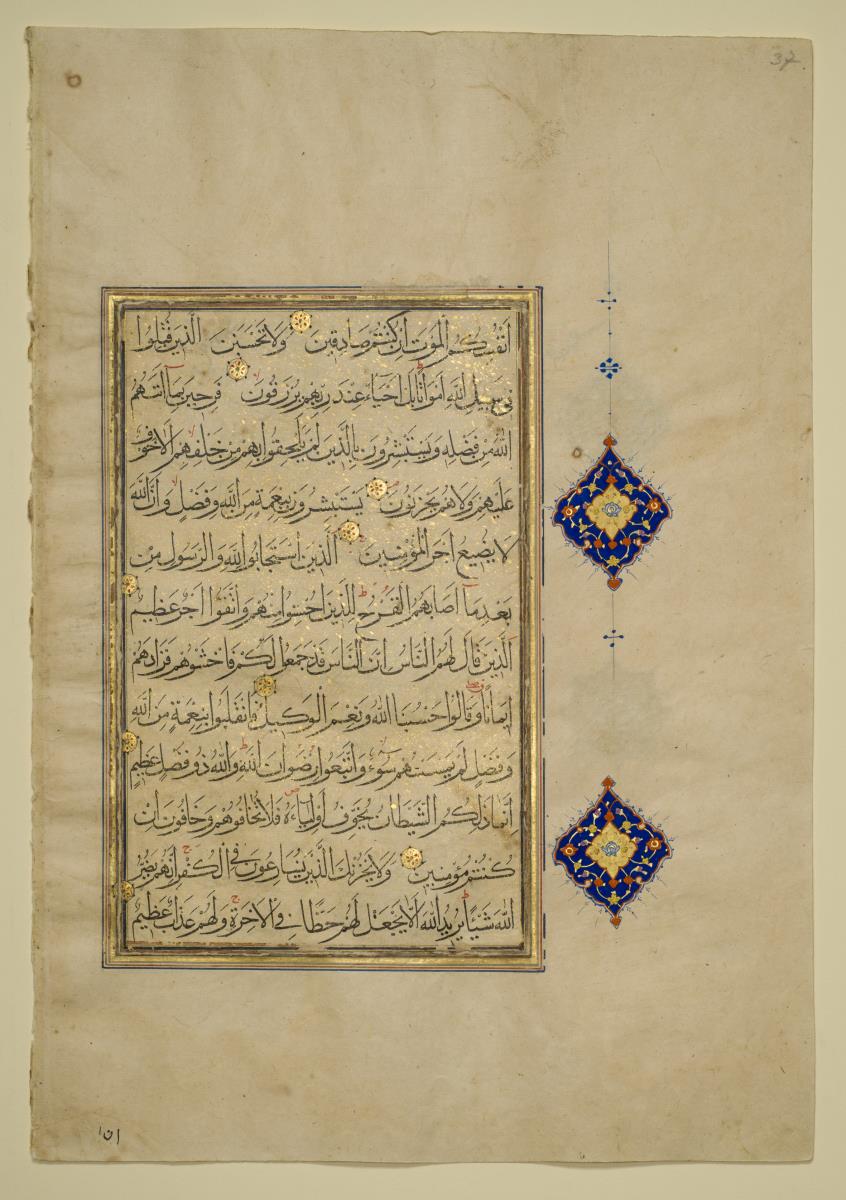 37
أَنْفُسِكُمُ الْمَوْتَ اِنْ كُنْتُمْ صَادِقِينَ وَلَا تَحْسَبَنَّ الَّذِينَ قُتِلُوا
فِي سَبِيلِ اللَّهِ اَمْوَاتًا بَلْ اَحْيَاءٌ عِنْدَ رَبِّهِمْ يُرْزَقُونَ فَرِحِينَ بِمَا آتَيهُمُ
اللَّهُ مِنْ فَضْلِهِ وَيَسْتَبْشِرُونَ بِالَّذِينَ لَمْ يَلْحَقُوا بِهِمْ مِنْ خَلْفِهِمْ اَلَّا خَوْفٌ
عَلَيْهِمْ وَلَا هُمْ يَحْزَنُونَ يَسْتَبْشِرُونَ بِنِعْمَةٍ مِنَ اللَّهِ وَفَضْلٍ وَاَنَّ اللَّهَ
لَا يُضِيعُ اَجْرَ الْمُؤْمِنِينَ الَّذِينَ اسْتَجَابُوا لِلَّهِ وَالرَّسُولِ مِنْ
بَعْدِ مَا اَصَابَهُمُ الْقَرْحُ لِلَّذِينَ اَحْسَنُوا مِنْهُمْ وَاتَّقَوْا اَجْرٌ عَظِيمٌ
الَّذِينَ قَالَ لَهُمُ النَّاسُ اِنَّ النَّاسَ قَدْ جَمَعُوا لَكُمْ فَاخْشَوْهُمْ فَزَادَهُمْ
اِيمَانًا وَقَالُوا حَسْبُنَا اللَّهُ وَنِعْمَ الْوَكِيلُ فَانْقَلَبُوا بِنِعْمَةٍ مِنَ اللَّهِ
وَفَضْلٍ لَمْ يَمْسَسْهُمْ سُوءٌ وَاتَّبَعُوا رِضْوَانَ اللَّهِ وَاللَّهُ ذُو فَضْلٍ عَظِيمٍ
اِنَّمَا ذَلِكُمُ الشَّيْطَانُ يُخَوِّفُ اَوْلِيَاءَهُ فَلَا تَخَافُوهُمْ وَخَافُونِ اِنْ
كُنْتُمْ مُؤْمِنِينَ وَلَا يَحْزُنْكَ الَّذِينَ يُسَارِعُونَ فِي الْكُفْرِ اِنَّهُمْ لَنْ يَضُرُّوا
اللَّهَ شَيْئًا يُرِيدُ اللَّهُ اَلَّا يَجْعَلَ لَهُمْ حَظًّا فِي الْآخِرَةِ وَلَهُمْ عَذَابٌ عَظِيمٌ